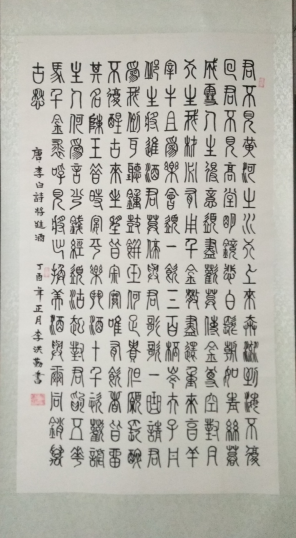 君不見黃河之水天上來奔流到海不復
回君不見高堂明鏡悲白髮朝如青絲暮
成雪人生得意須盡歡莫使金尊空對月
天生我材必有用千金散盡還復來烹羊
宰牛且為樂會須一飲三百杯岑夫子丹
邱生將進酒君莫停與君歌一曲請君
為我側耳聽鐘鼓饌玉何足貴但願長醉
不復醒古來聖賢皆寂寞唯有飲者留
其名陳王昔時宴平樂斗酒十千恣歡謔
主人何為言少錢徑須沽取對君酌五花
馬千金裘呼兒將出換美酒與爾同銷萬
古愁
唐李白詩將進酒 丁酉年正月李洪書